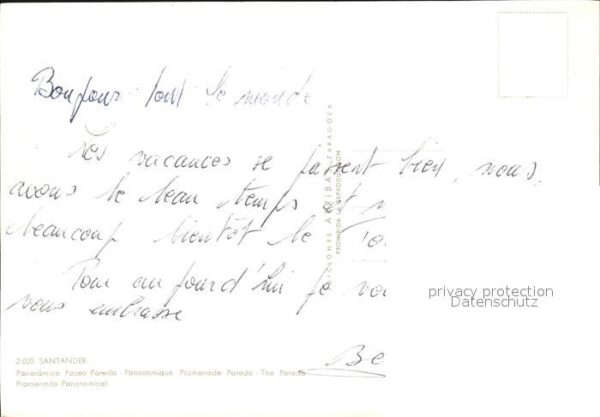 Bonjour tout le monde
Les vacances se passent bien, nous
avons le beau temps et
beaucoup bientôt le
Pour aujourd'hui je
vous embrasse
Be
EDICIONES ARRIBAS - ZARAGOZA
PROHIBIDA LA REPRODUCCION
privacy protection
Datenschutz
2.020. SANTANDER.
Panorámica Paseo Pereda - Panoramique Promenade Pereda - The Pereda
Promenade Panoramical